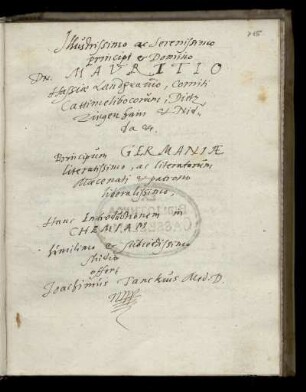 Illustrissimo ac Serenissimo
principi & Domino
Dn. MAVRITIO
Hassiæ Landgravio, Comiti
Cattimelibocorum, Dietz
Zigenhain & Nid
da &c.
Principum GERMANIÆ
literatissimo, ac literatorum
Mæcenati & patrono
liberalissimo,
Hanc Introductionem in
CHEMIAM
humilimo & studiosissimo
studio
offert
Joachimus Tanckius Med. D.